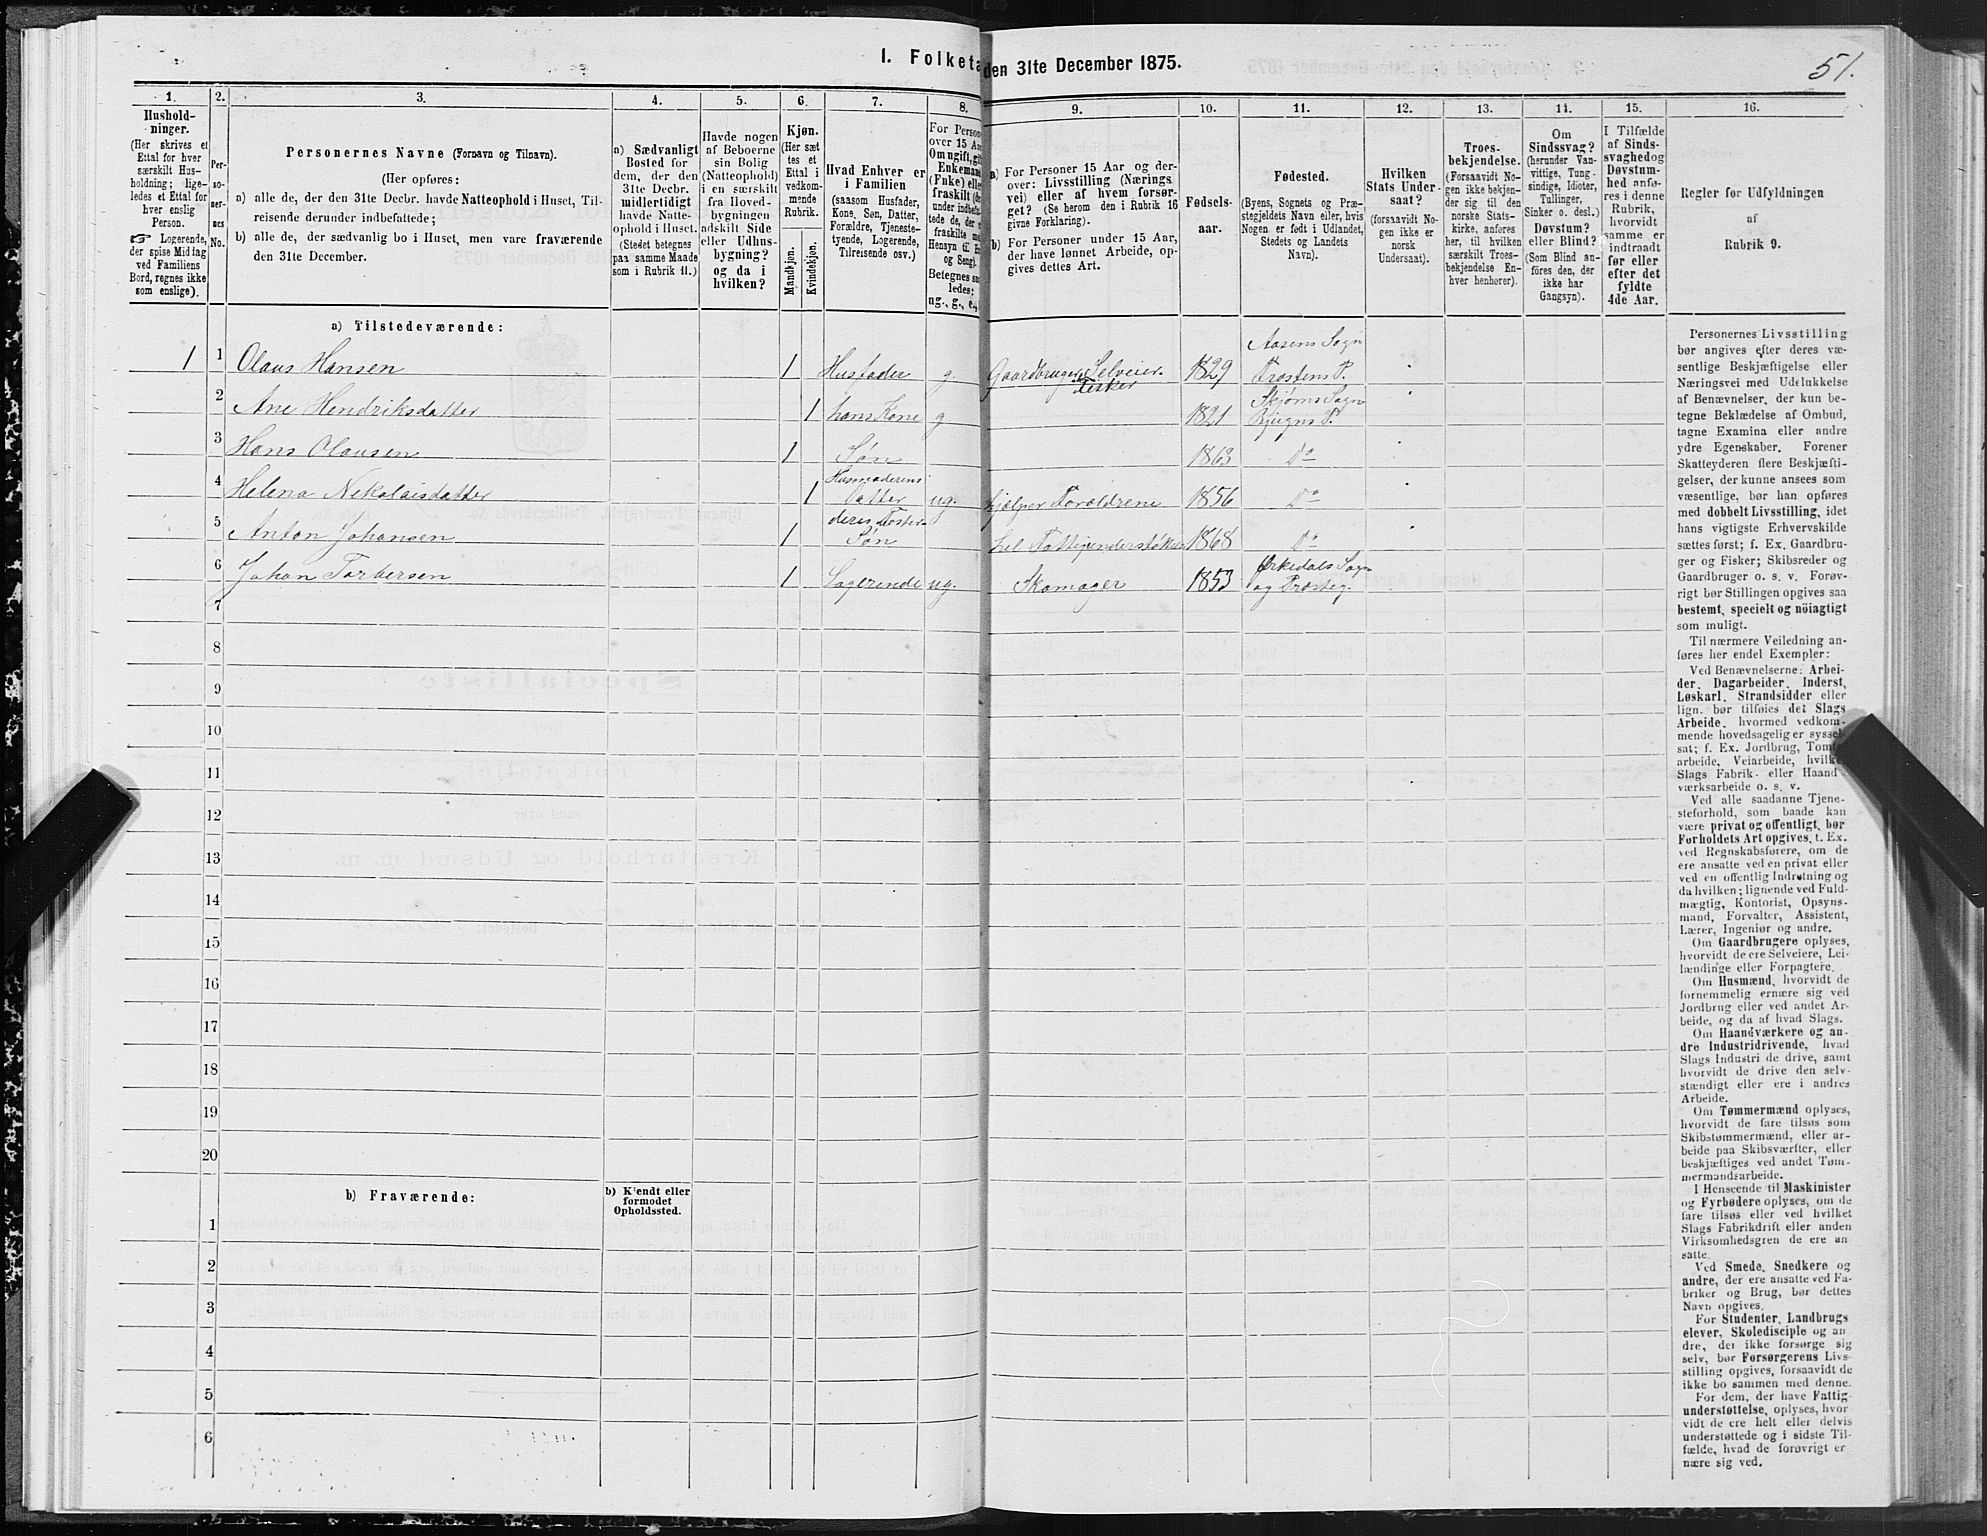 I. Folketa den 31te December 1875.
51.
1.
Hushold-
ninger.
(Her skrives et
Ettal for hver
særskilt Hus-
holdning; lige-
ledes et Ettal for
hver enslig
Person.
☞ Logerende,
der spise Middag
ved Familiens
Bord, regnes ikke
som enslige).
2.
Per-
so-
ner-
nes
No.
3.
Personernes Navne (Fornavn og Tilnavn).
(Her opføres:
a) alle de, der den 31te Decbr. havde Natteophold i Huset, Til-
reisende derunder indbefattede;
b) alle de, der sædvanlig bo i Huset, men vare fraværende
den 31te December.
4.
a) Sædvanligt
Bosted for
dem, der den
31te Decbr.
midlertidigt
havde Natte-
ophold i Huset.
(Stedet betegnes
paa samme Maade
som i Rubrik 11.)
5.
Havde nogen
af Beboerne
sin Bolig
(Natteophold)
i en særskilt
fra Hoved-
bygningen
adskilt Side
eller Udhus-
bygning?
og da i
hvilken?
6.
Kjøn.
(Her sæt
tes et
Ettal i
vedkom-
mende
Rubrik.
Mandkjøn.
Kvindekjøn.
7.
Hvad Enhver er
i Familien
(saasom Husfader,
Kone, Søn, Datter,
Forældre, Tjeneste-
tyende, Logerende,
Tilreisende osv.)
8.
For Person
over 15 Aa
Om ugift, gif
Enkemand
(Fnke) elle
fraskilt (de
under indbefa
tede de, der
fraskilte me
Hensyn til B
og Seng).
Betegnes saa
ledes:
ug., g., e.,
9.
a) For Personer 15 Aar og der-
over: Livsstilling (Nærings
vei) eller af hvem forsør-
get? (Se herom den i Rubrik 16
givne Forklaring).
b) For Personer under 15 Aar,
der have lønnet Arbeide, op-
gives dettes Art.
10.
Fødsels-
aar.
11.
Fødested.
(Byens, Sognets og Præ-
stegjeldets Navn eller, hvis
Nogen er født i Udlandet,
Stedets og Landets
Navn).
12.
Hvilken
Stats Under-
saat?
(forsaavidt No-
gen ikke er
norsk
Undersaat).
13.
Troes-
bekjendelse.
(Forsaavidt No-
gen ikke bekjen-
der sig til den
norske Stats-
kirke, anføres
her, til hvilken
særskilt Troes-
bekjendelse En-
hver henhører).
14.
Om
Sindssvag?
(herunder Van-
vittige, Tung-
sindige, Idioter,
Tullinger,
Sinker o. desl.)
Døvstum?
eller Blind?
(Som Blind an-
føres den, der
ikke har
Gangsyn).
15.
I Tilfælde
af Sinds-
svaghedog
Døvstum-
hed anfø-
res i denne
Rubrik,
hvorvidt
samme er
indtraadt
før eller
efter det
fyldte
4de Aar.
16.
Regler for Udfyldningen
af
Rubrik 9.
a) Tilstedeværende:
1 1 Olaus Hansen 1 Husfader g. Gaardbruger Selveier Fisker 1829 Aasens Sogn Frostens P.
2 Ane Hendriksdatter 1 hans Kone g 1821 Skjørns Sogn Bjugns P.
3 Hans Olausen 1 Søn 1863 Do
4 Helena Nikolaisdatter 1 Husmoderens Datter ug. hjælper Foraldrene 1856 Do
5 Anton Johansen 1 deres Foster- Søn 1868 Do
6 Johan Torbersen 1 Logerende ug. Skomager 1853 Ørkedals Sogn og Præsteg.
7
8
9
10
11
12
13
14
15
16
17
18
19
20
b) Fraværende:
b) Kjendt eller
formodet
Opholdssted.
1
2
3
4
5
6
Personernes Livsstilling
bør angives efter deres væ-
sentlige Beskjæftigelse eller
Næringsvei med Udelukkelse
af Benævnelser, der kun be-
tegne Beklædelse af Ombud,
tagne Examina eller andre
ydre Egenskaber. Forener
Skatteyderen flere Beskjæfti-
gelser, der kunne ansees som
væsentlige, bør han opføres
med dobbelt Livsstilling, idet
hans vigtigste Erhvervskilde
sættes først; f. Ex. Gaardbru-
ger og Fisker; Skibsreder og
Gaardbruger o. s. v. Forøv-
rigt bør Stillingen opgives saa
bestemt, specielt og nöiagtigt
som muligt.
Til nærmere Veiledning an-
føres her endel Exempler:
Ved Benævnelserne: Arbei-
der, Dagarbeider, Inderst,
Løskarl, Strandsidder eller
lign. bør tilføies det Slags
Arbeide, hvormed vedkom-
mende hovedsagelig er syssel-
sat; f. Ex. Jordbrug, Tomte-
arbeide, Veiarbeide, hvilket
Slags Fabrik- eller Haand-
værksarbeide o. s. v.
Ved alle saadanne Tjene-
steforhold, som baade kan
være privat og offentligt, bør
Forholdets Art opgives, t. Ex.
ved Regnskabsførere, om de
ere ansatte ved en privat eller
ved en offentlig Indretning og
da hvilken; lignende ved Fuld-
mægtig, Kontorist, Opsyns-
mand, Forvalter, Assistent,
Lærer, Ingeniør og andre.
Om Gaardbrugere oplyses,
hvorvidt de ere Selveiere, Lei-
lændinge eller Forpagtere.
Om Husmænd, hvorvidt de
fornemmelig ernære sig ved
Jordbrug eller ved andet Ar-
beide, og da af hvad Slags.
Om Haandværkere og an-
dre Industridrivende, hvad
Slags Industri de drive, samt
hvorvidt de drive den selv-
stændigt eller ere i andres
Arbeide.
Om Tømmermænd oplyses,
hvorvidt de fare tilsøs som
Skibstømmermænd, eller ar-
beide paa Skibsværfter, eller
beskjæftiges ved andet Tøm-
mermandsarbeide.
I Henseende til Maskinister
og Fyrbødere oplyses, om de
fare tilsøs eller ved hvilket
Slags Fabrikdrift eller anden
Virksomhedsgren de ere an-
satte.
Ved Smede, Snedkere og
andre, der ere ansatte ved Fa-
briker og Brug, bør dettes
Navn opgives.
For Studenter, Landbrugs
elever, Skoledisciple og an-
dre, der ikke forsørge sig
selv, bør Forsørgerens Livs-
stilling opgives, forsaavidt de
ikke bo sammen med denne.
For dem, der have Fattig-
understøttelse, oplyses, hvor-
vidt de ere helt eller delvis
understøttede og i sidste Til-
fælde, hvad de forøvrigt er-
nære sig ved.